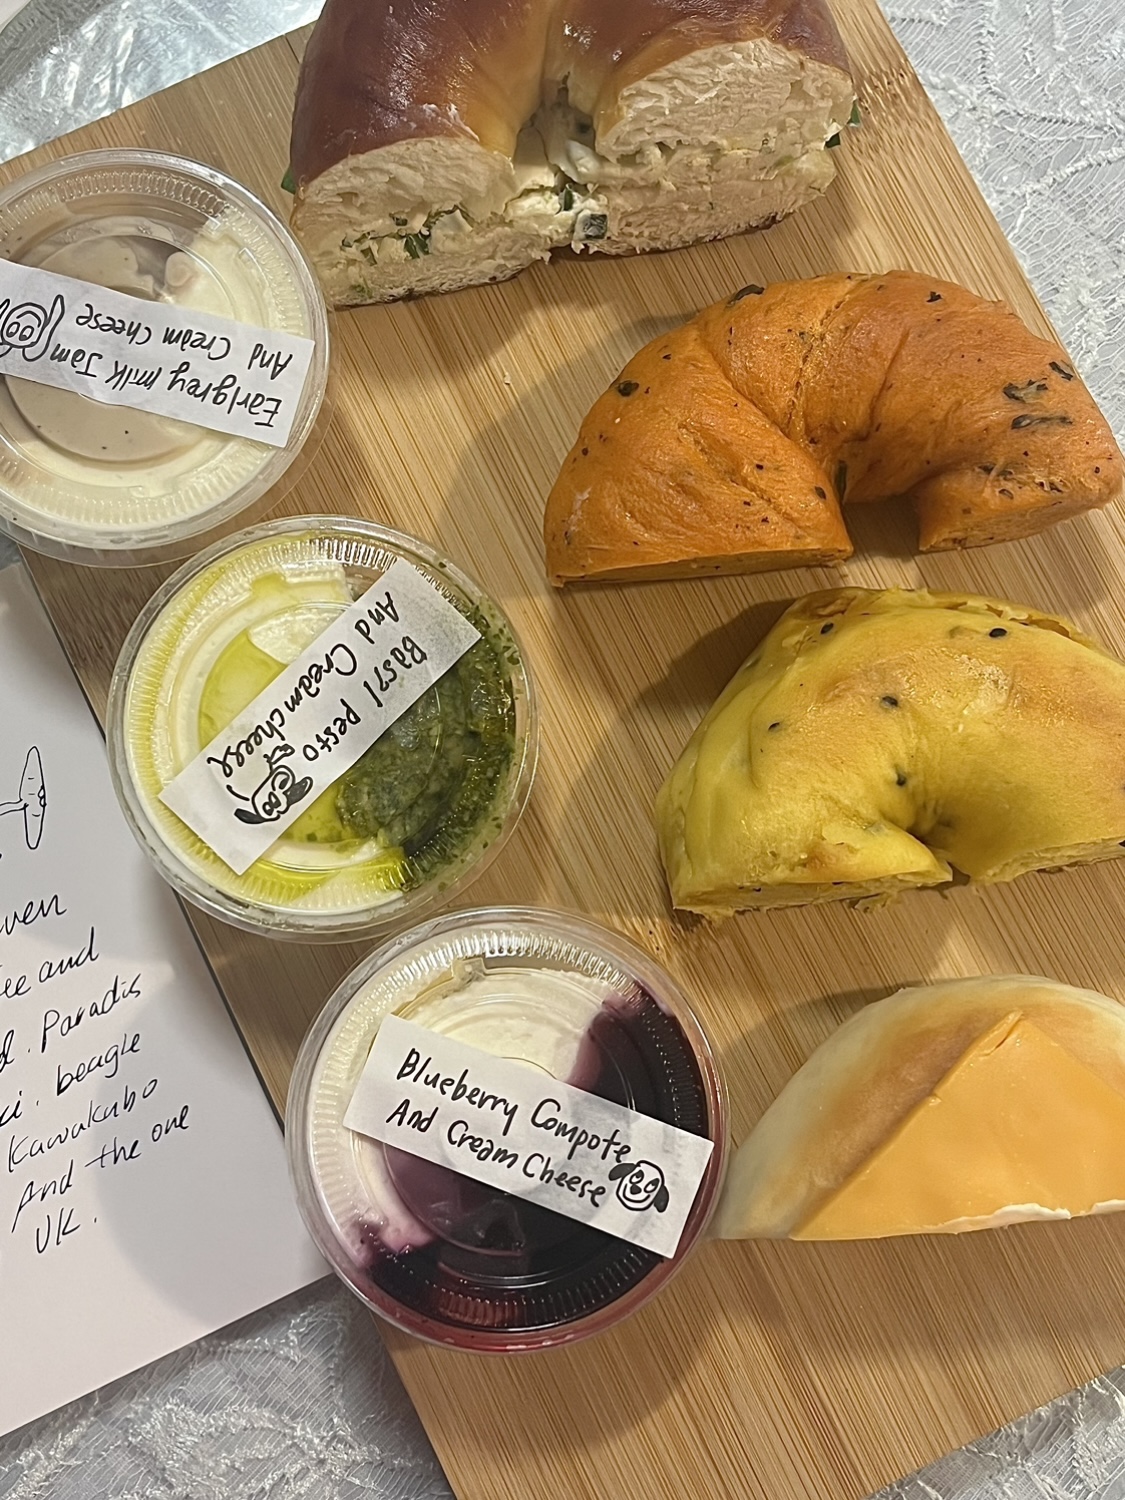 Earlgrey milk Jam
And Cream cheese
Basil pesto
And Cream cheese
Blueberry Compote
And Cream Cheese
and
Paradis
beagle
Kawakubo
And the one
UK.